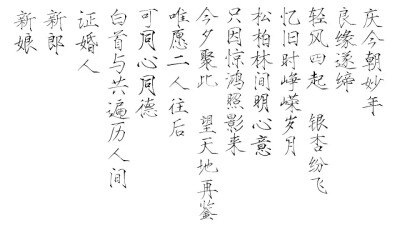 庆今朝妙年
良缘遂缔
轻风四起 银杏纷飞
忆旧时峥嵘岁月
松柏林间明心意
只因惊鸿照影来
今夕聚此 望天地再鉴
唯愿二人往后
可同心同德
白首与共遍历人间
证婚人
新郎
新娘